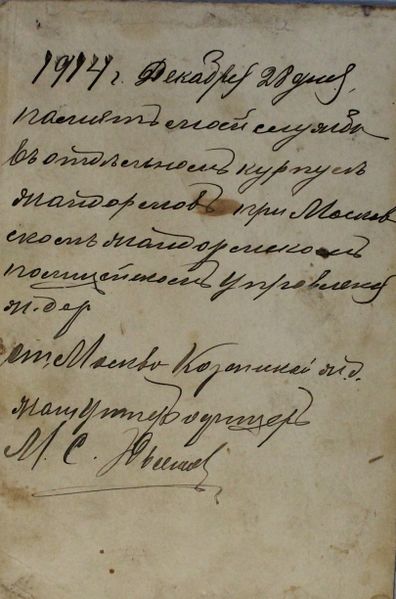 1914 г. Декабря 28 дня,
память моей службы
в отдельном курпусе
жандормов при Москов
ском жандормском
полицейском Управлений
ж. дер
ст. Москва Казанской ж. д.
М. С.